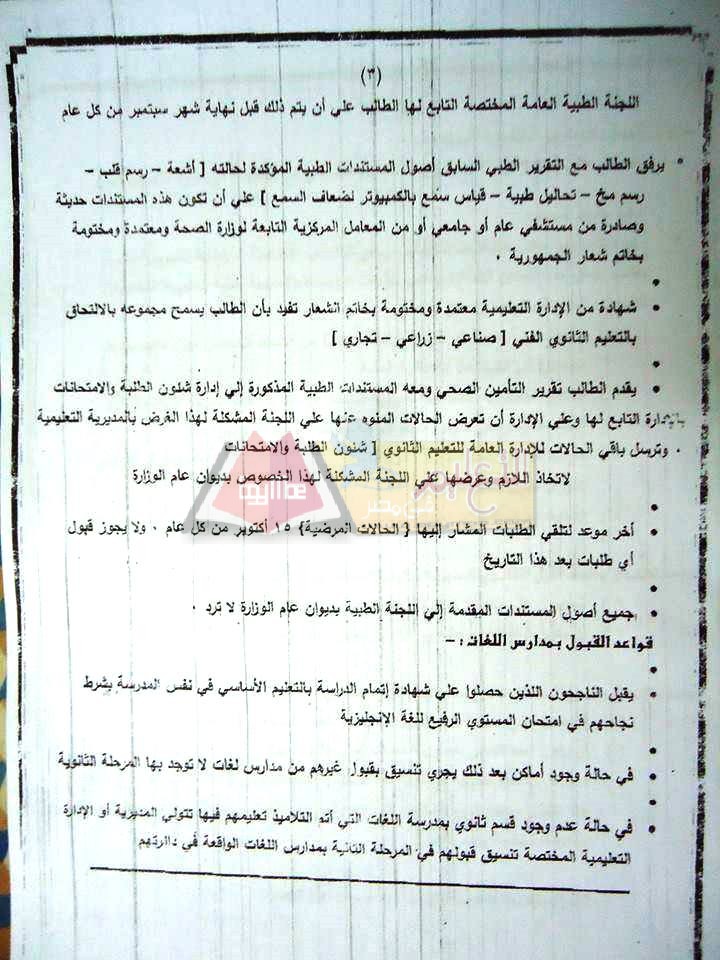 (٣)
اللجنة الطبية العامة المختصة التابع لها الطالب علي أن يتم ذلك قبل نهاية شهر سبتمبر من كل عام
• يرفق الطالب مع التقرير الطبي السابق أصول المستندات الطبية المؤكدة لحالته [ أشعة – رسم قلب –
رسم مخ – تحاليل طبية – قياس سمع بالكمبيوتر لضعاف السمع ] علي أن تكون هذه المستندات حديثة
وصادرة من مستشفي عام أو جامعي أو من المعامل المركزية التابعة لوزارة الصحة ومعتمدة ومختومة
بخاتم شعار الجمهورية .
•
• شهادة من الإدارة التعليمية معتمدة ومختومة بخاتم الشعار تفيد بأن الطالب يسمح مجموعه بالالتحاق
بالتعليم الثانوي الفني [ صناعي – زراعي – تجاري ]
•
• يقدم الطالب تقرير التأمين الصحي ومعه المستندات الطبية المذكورة إلي إدارة شئون الطلبة والامتحانات
بالإدارة التابع لها وعلي الإدارة أن تعرض الحالات المنوه عنها علي اللجنة المشكلة لهذا الغرض بالمديرية التعليمية
. وترسل باقي الحالات للإدارة العامة للتعليم الثانوي [ شئون الطلبة والامتحانات
لاتخاذ اللازم وعرضها علي اللجنة المشكلة لهذا الخصوص بديوان عام الوزارة
•
• أخر موعد لتلقي الطلبات المشار إليها { الحالات المرضية} ١٥ أكتوبر من كل عام . ولا يجوز قبول
أي طلبات بعد هذا التاريخ
•
• جميع أصول المستندات المقدمة إلي اللجنة الطبية بديوان عام الوزارة لا ترد .
قواعد القبول بمدارس اللغات :-
•
• يقبل الناجحون اللذين حصلوا علي شهادة إتمام الدراسة بالتعليم الأساسي في نفس المدرسة بشرط
نجاحهم في امتحان المستوي الرفيع للغة الإنجليزية
•
• في حالة وجود أماكن بعد ذلك يجري تنسيق بقبول غيرهم من مدارس لغات لا توجد بها المرحلة الثانوية
•
• في حالة عدم وجود قسم ثانوي بمدرسة اللغات التي أتم التلاميذ تعليمهم فيها تتولي المديرية أو الإدارة
التعليمية المختصة تنسيق قبولهم في المرحلة الثانية بمدارس اللغات الواقعة في دائرتهم